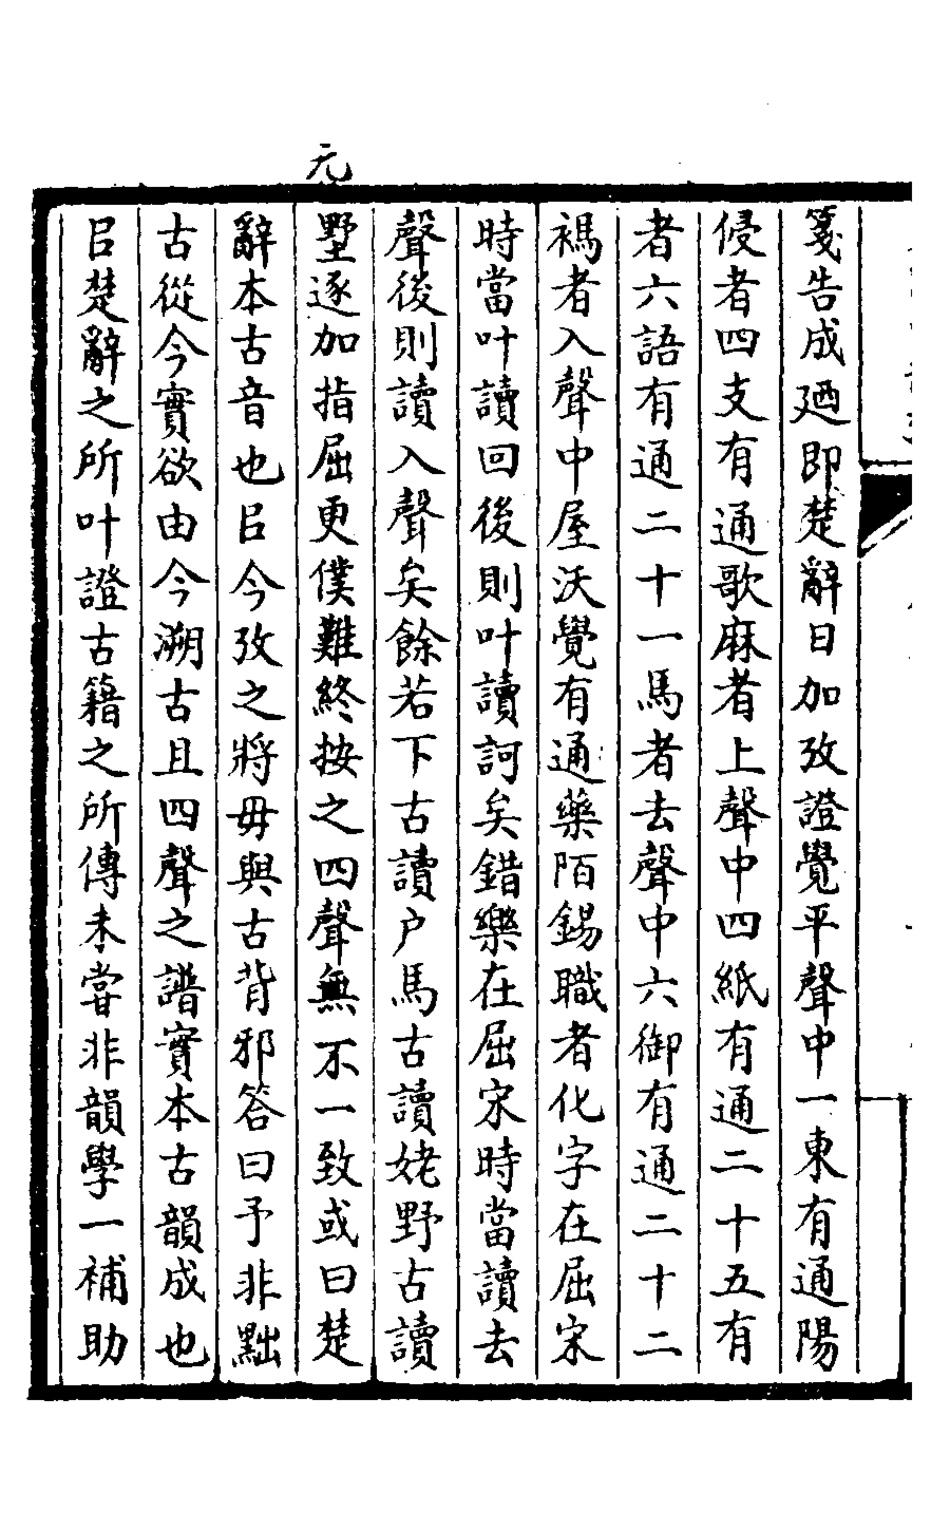 箋告成廼即楚辭日加攷證覺平聲中一東有通陽
侵者四支有通歌麻者上聲中四紙有通二十五有
者六語有通二十一馬者去聲中六御有通二十二
禡者入聲中屋沃覺有通藥陌錫職者化字在屈宋
時當叶讀回後則叶讀訶矣錯樂在屈宋時當讀去
聲後則讀入聲矣餘若下古讀户馬古讀姥野古讀
墅逐加指屈更僕難終按之四聲無不一致或曰楚
辭本古音也㠯今攷之將毋與古背邪答曰予非黜
古從今實欲由今溯古且四聲之譜實本古韻成也
㠯楚辭之所叶證古籍之所傳未嘗非韻學一補助
元